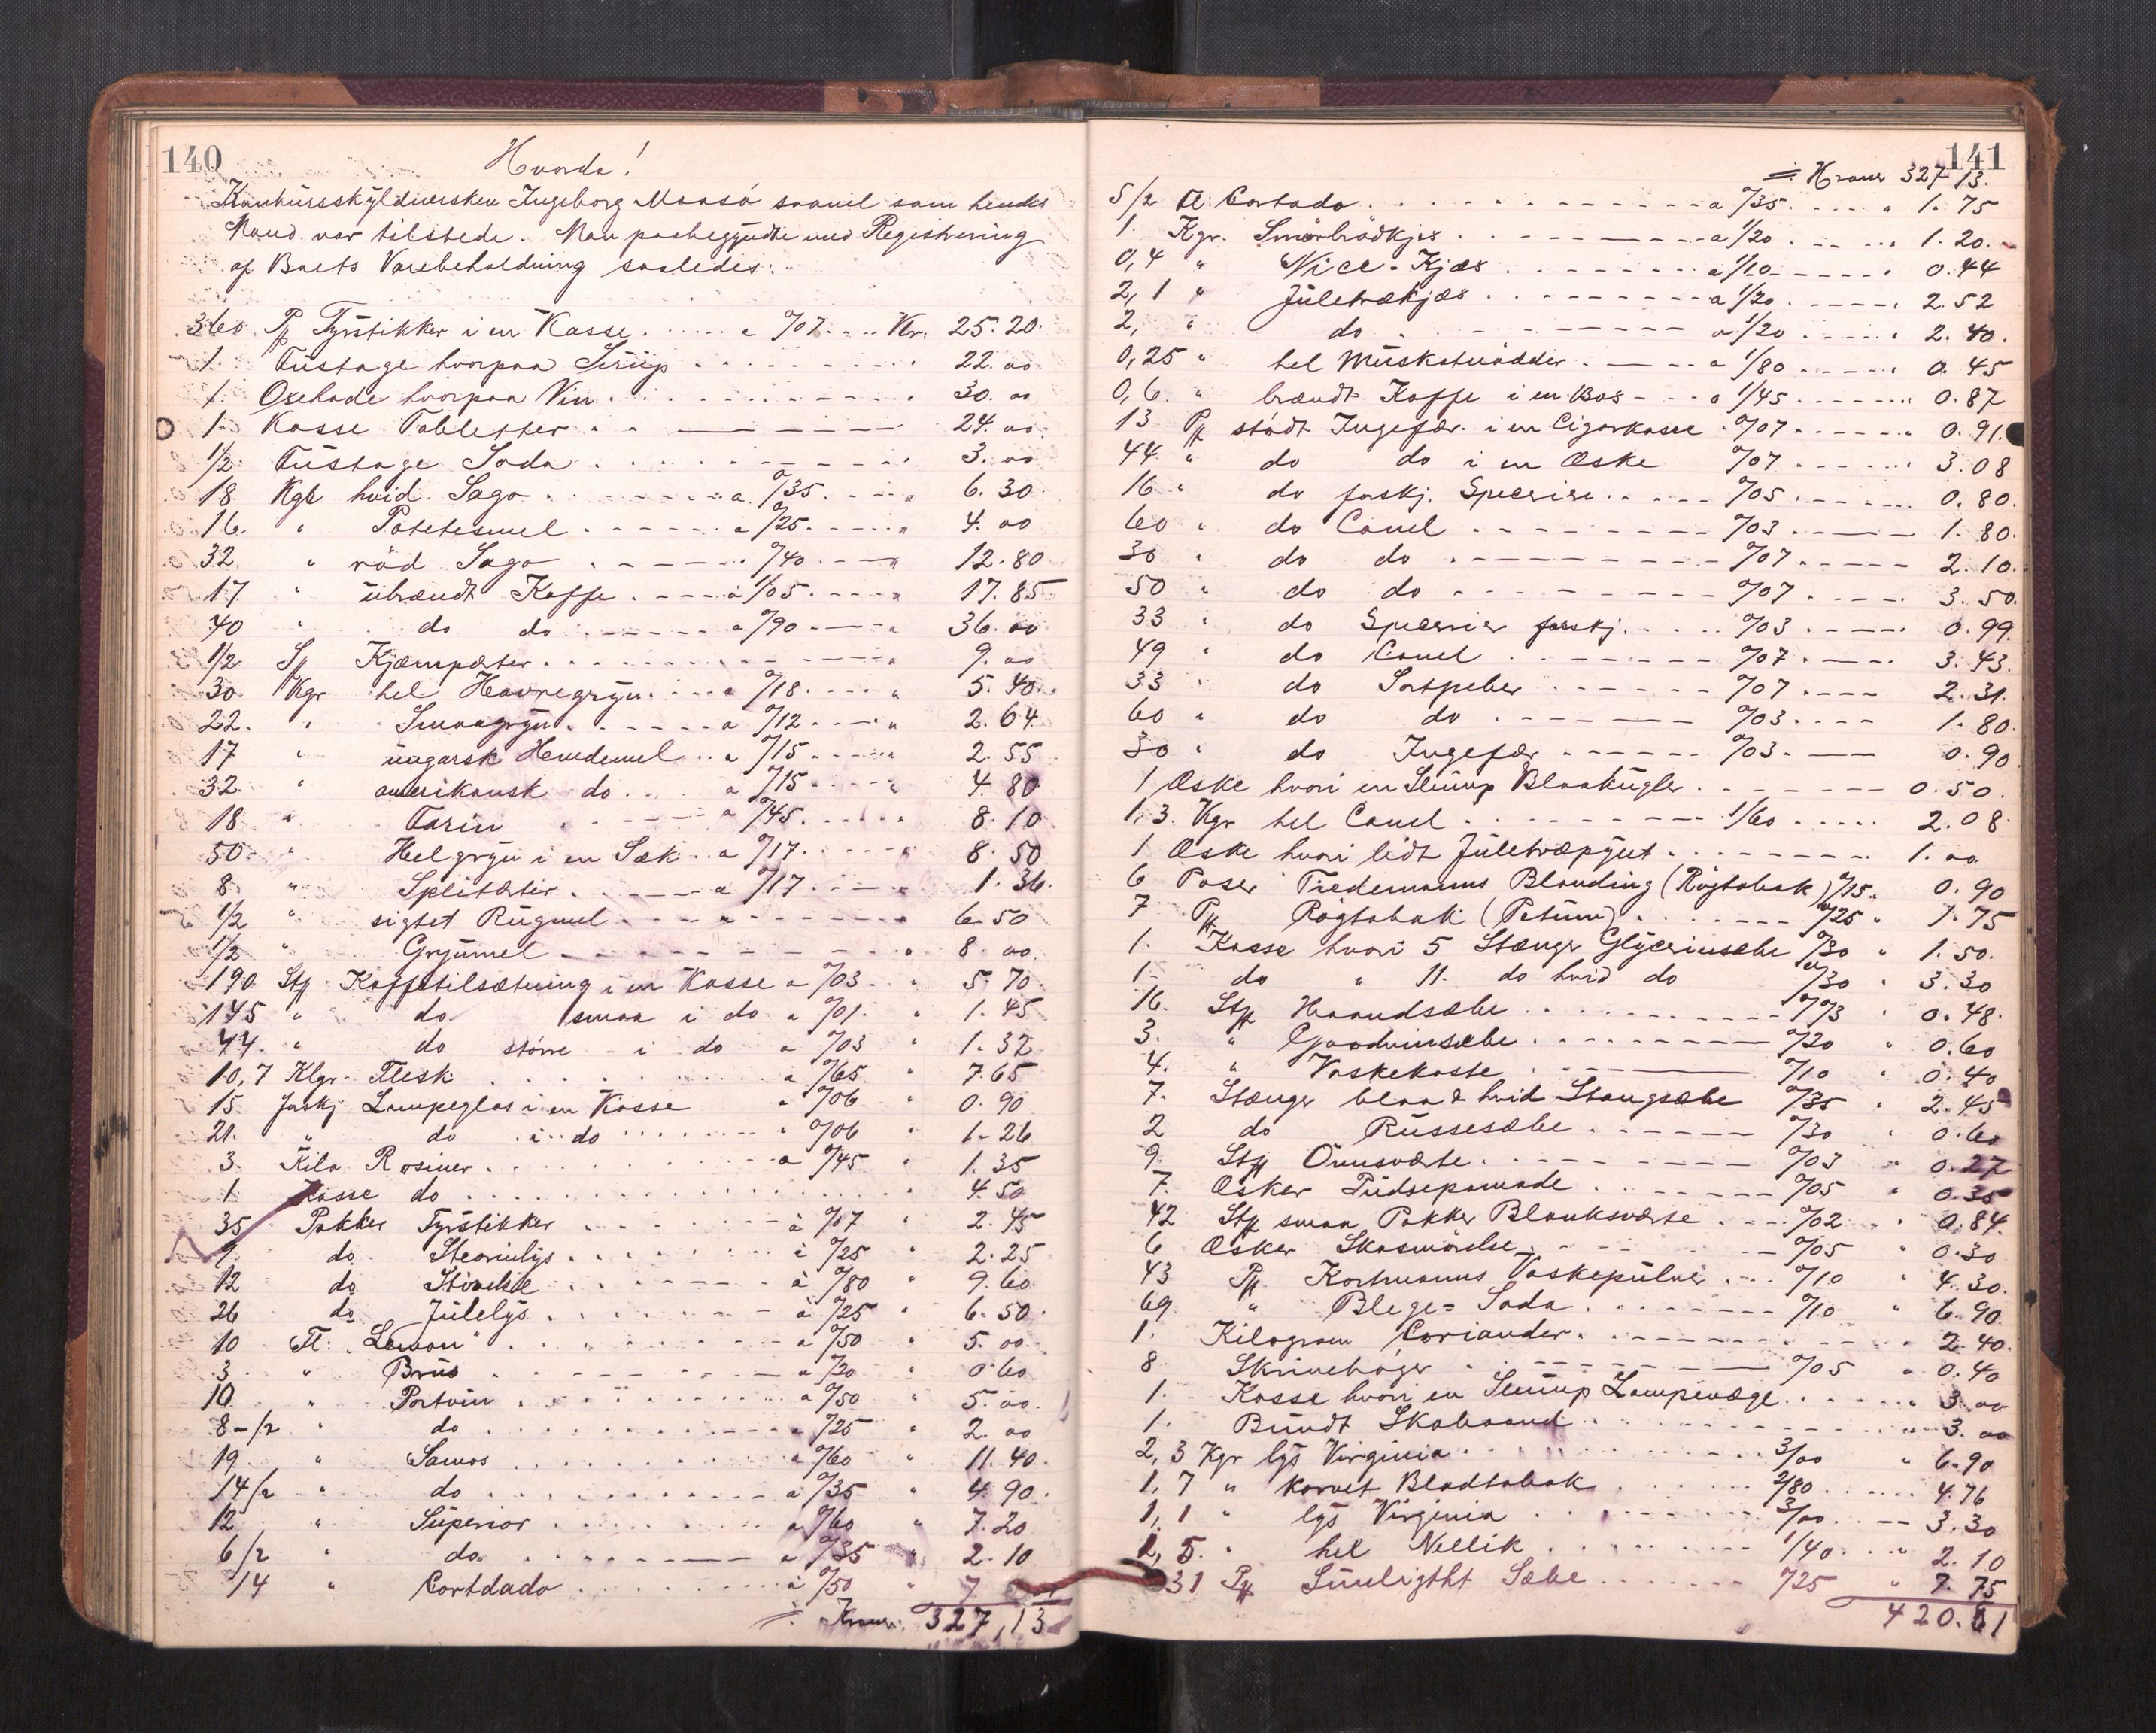 140
Hvorda!
Konkursskyldnersken Ingeborg Maasö saavel som hendes
Mand var tilstede. Man paabegyndte med Registrering
af Boets Varebeholdning saaledes:
360 Pk Fyrstikker i en Kasse . . . . a 0/07 . . . Kr. 25.20.
1. Fustage hvorpaa Sirup . . . . . . . " 22.00
1. Oxehode hvorpaa Vin . . . . . . . " 30.00
1. Kasse Tabletter . . — — — " 24.00
1/2 Fustage Soda . . . . . . " 3.00
18 Kgr hvid Sago . . . . a 0/35 . . . " 6.30
16. " Potetesmel . . . . a 0/25 . . . " 4.00
32 " röd Sago . . . . 0/40 . . . " 12.80
17 " übrændt Kaffe . . . a 1/05 . . . " 17.85
40 " do do . . . . a 0/90 . . . " 36.00
1/2 Sk Kjæmpærter . . . . . . . " 9.00
30. Kgr hel Havregryn . . . a 0/18 . . . " 5.40.
22. " Smaagryn . . . . a 0/12 . . . " 2.64
17 " ungarsk Hvedemel . . a 0/15 . . . 2.55
32. " amerikansk do . . . a 0/15 . . . " 4.80
18 " Farin . . . a 0/45 . . . " 8.10
50 " Helgryn i en Sæk . . a 0/17 . . . " 8.50
8 " Splitærter . . . . a 0/17 . . . " 1.36.
1/2 " sigtet Rugmel . . . . . . " 6.50
1/2 " Grynmel . . . . . . " 8.00.
190 Stk Kaffetilsætning i en Kasse a 0/03 . " 5.70.
145 " do. smaa i do a 0/01. " 1.45
44. " do större i do a 0/03 " 1.32
10,7 Klgr. Flesk . . . . . . . a 0/65 " 7.65
15 forskj Lampeglas i en Kasse a 0/06 " 0.90
21. " do i do . . . . " 0/06 " 1.26
3. Kilo Rosiner . . . . . . . a 0/45 " 1.35
1 Kasse do . . . . . . . . . . 4.50
35 Pakker Fyrstikker . . . . . . à 0/07 " 2.45
9 do. Stearinlys . . . . . . à 0/25 " 2.25
12 do Stivelse . . . . . . à 0/80 " 9.60
26 do Julelys . . . . . . à 0/25 " 6.50.
10 Fl. "Lemon" . . . . . . . a 0/50 " 5.00.
3. " Brus . . . . . . . a 0/20 " 0.60
10. " Portvin . . . . . . . a 0/50 " 5.00.
8-/2 " do . . . . . . . a 0/25 " 2.00
19. " Samos . . . . . . . a 0/60 " 11.40.
14/2 " do . . . . . . . a 0/35 " 4.90.
12 " Superior . . . . . . . a 0/60 " 7.20
6/2 " do. . . . . . . a 0/35 " 2.10
14 " Cortdado . . . . . . . à 0/50 " 7.
Kroner. 327,13
141
Kroner 327.13.
5/2 Fl. Cortado . . . . . . . . a 0/35 . . . . " 1.75
1. Kgr. Smörbrödkjes . . . . . a 1/20 . . . . 1.20.
0,4 " Nice-Kjæs . . . . . a 1/10 . . . . . 0.44
2,1 " Juletrækjæs . . . . . a 1/20 . . . . 2.52
2, " do . . . . . a 1/20 . . . . 2.40.
0,25 " hel Muskatnödder . . . . a 1/80 . . . . 0.45
0,6. " brændt Kaffe i en Bos . . . a 1/45 . . . . 0.87
13 Pk stödt Ingefær i en Cigarkasse 0/07 . . . . " 0.91.
44 " do do i en Æske 0/07 . . . . 3.08
16 " do forskj. Specerier . . . . 0/05 . . . . 0.80.
60 " do Canel . . . . . . 0/03 . . . . 1.80.
30 " do do . . . . . . 0/07 . . . . 2.10.
50 " do do . . . . . . 0/07 . . . . 3.50.
33 " do Specerier forskj. . . . 0/03 . . . . 0.99.
49 " do Canel . . . . . . 0/07 . . . . 3.43.
33 " do Sortpeber . . . . . 0/07 . . . . 2.31.
60 " do do . . . . . 0/03 . . . . 1.80.
30 " do Ingefær . . . . . 0/03 . — 0.90.
1 Æske hvori en Slump Blaakugler . . . . . . 0.50.
1,3. Kgr hel Canel . . . . . . 1/60 . . . . 2.08
1 Æske hvori lidt Juletræpynt . . . . . . . 1.00
6 Poser Tiedemanns Blanding (Rögtobak) 0/15. 0.90
7 Pk Rögtobak (Petum) . . . . . 0/25 " 1.75
1. Kasse hvori 5 Stænger Glycerinsæbe 0/30 " 1.50.
1- do " 11. do hvid do 0/30 " 3.30
16. Stk Haandsæbe . . . . . . 0/03 " 0.48.
3. " Goodvinsæbe . . . . . . 0/20 " 0.60
4. " Vaskekoste . . . . . . 0/10 " 0.40
7. Stænger blaa & hvid Stangsæbe 0/35 " 2.45
2 do Russesæbe . . . . . 0/30 " 0.60
9. Stk Ovnsværte . . . . . . 0/03 " 0.27
7. Æsker Pudsepomade . . . . . 0/05 " 0.35
42 Stk smaa Pakker Blanksværte . . . 0/02 " 0.84.
6 Æsker Skosmörelse . . . . . 0/05 " 0.30
43 Pk Kortmanns Vaskepulver . . . 0/10 " 4.30.
69. " Blege=Soda . . . . . . 0/10 " 6.90.
1. Kilogram Coriander . . . . . . . . . 2.40.
8 Skriveböger . . . . . . 0/05 " 0.40
1. Kasse hvori en Slump Lampevæge . . . . . 3.00
1. Bundt Skobaand . . . . . . . . 3.00
2,3 Kgr lys Virginia . . . . . . . 3/00 " 6.90
1,7 " Karvet Bladtobak . . . . 2/80 . . . . 4.76
1,1 " lys Virginia . . . . . . 3/00 . . — 3.30
1,5. " hel Nellik . . . . . . 1/40 . . " 2.10
31 Pk Sunligtht Sæbe . . . . . . 0/25 " 7.75
420.61